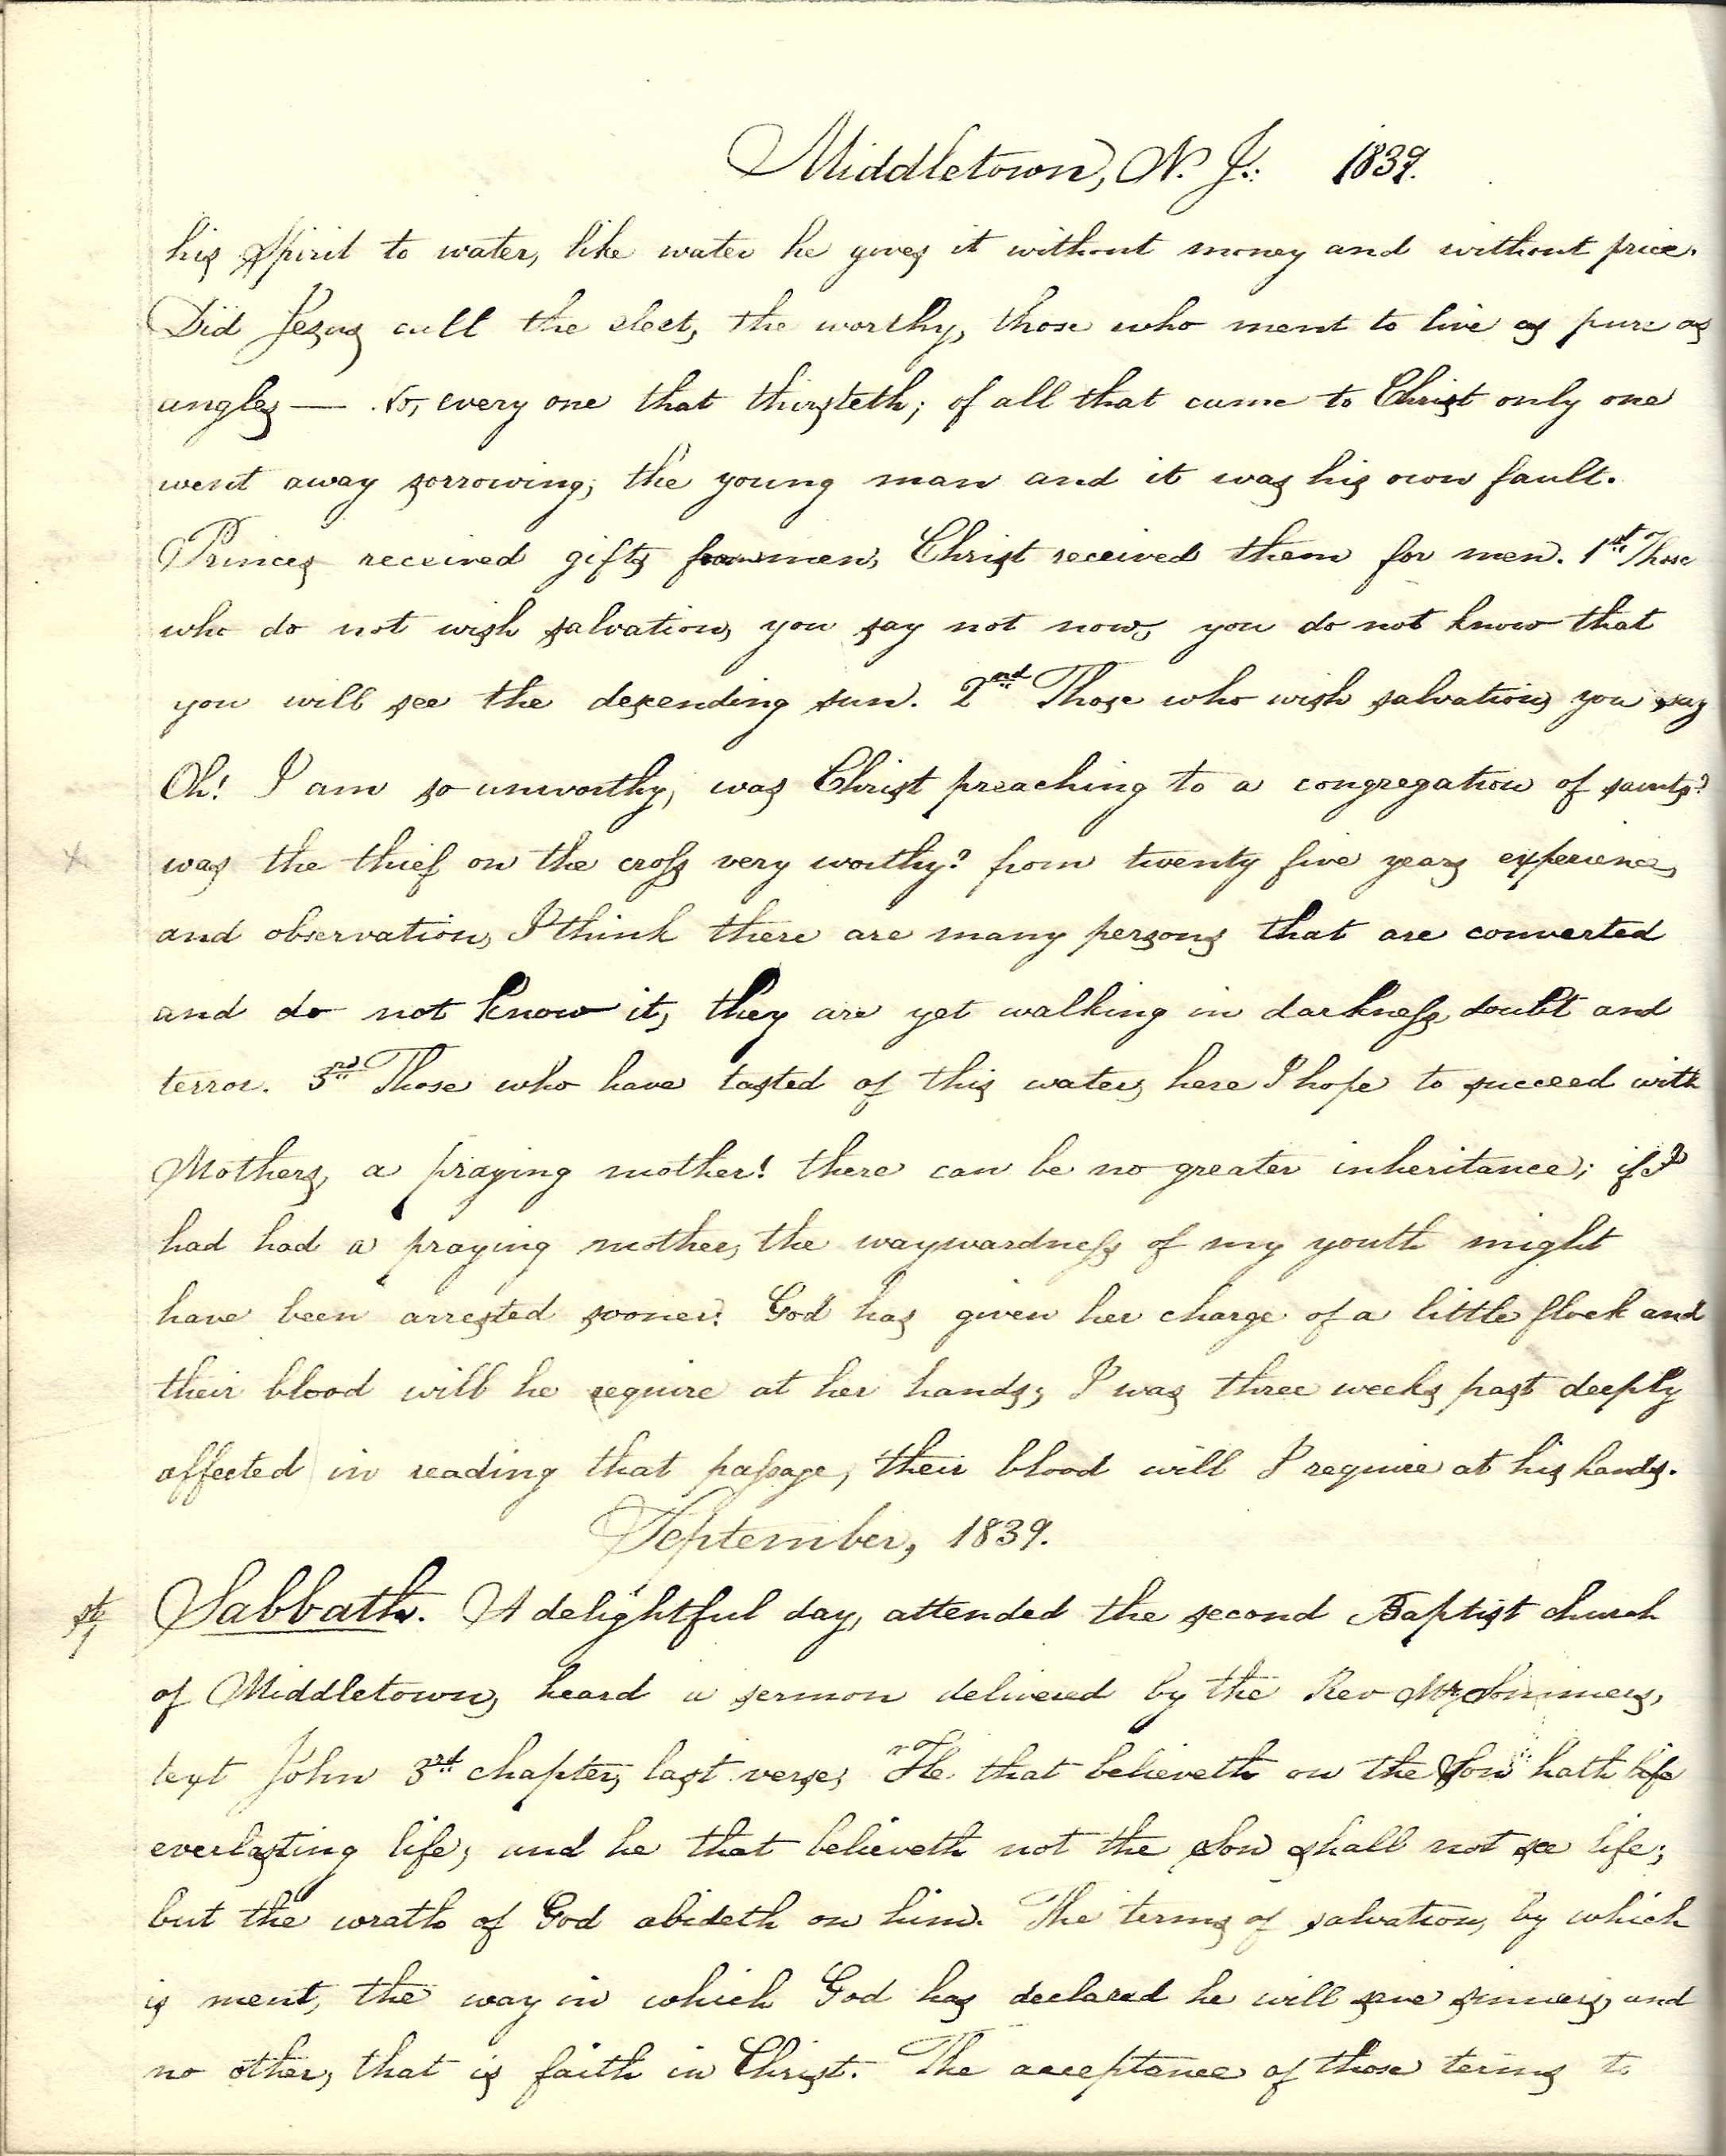 Middletown, N. J.: 1839.
his Spirit to water, like water he gives it without money and without price.
Did Jesus call the elect, the worthy, those who ment to live as pure as
angles — No, every one that thirsteth; of all that came to Christ only one
went away sorrowing; the young man and it was his own fault.
Princes received gifts from men, Christ received them for men. 1st Those
who do not wish salvation, you say not now, you do not know that
you will see the desending sun. 2nd Those who wish salvation, you say
Oh! I am so unworthy, was Christ preaching to a congregation of saints?
x was the thief on the cross very worthy? from twenty five years experience,
and observation, I think there are many persons that are converted
and do not know it, they are yet walking in darkness, doubt and
terror. 3rd Those who have tasted of this water, here I hope to succeed with
Mothers, a praying mother! there can be no greater inheritance; if I
had had a praying mother, the waywardness of my youth might
have been arrested sooner! God has given her charge of a little flock and
their blood will he require at her hands; I was three weeks past deeply
affected in reading that passage, their blood will I require at his hands.
September, 1839.
1st Sabbath. A delightful day, attended the second Baptist church
of Middletown, heard a sermon delivered by the Rev Mr
text John 3rd chapter, last verse; "He that believeth on the Son hath life
everlasting life; and he that believeth not the Son shall not see life;
but the wrath of God abideth on him. The terms of salvation, by which
is ment, the way in which God has declared he will save sinners, and
no other, that is faith in Christ. The acceptance of those terms to